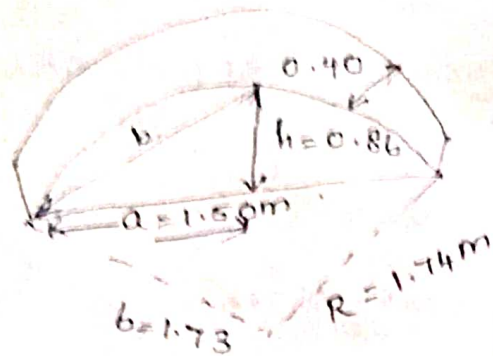 0.40
b
h = 0.86
a = 1.50m
b = 1.73
R = 1.74m